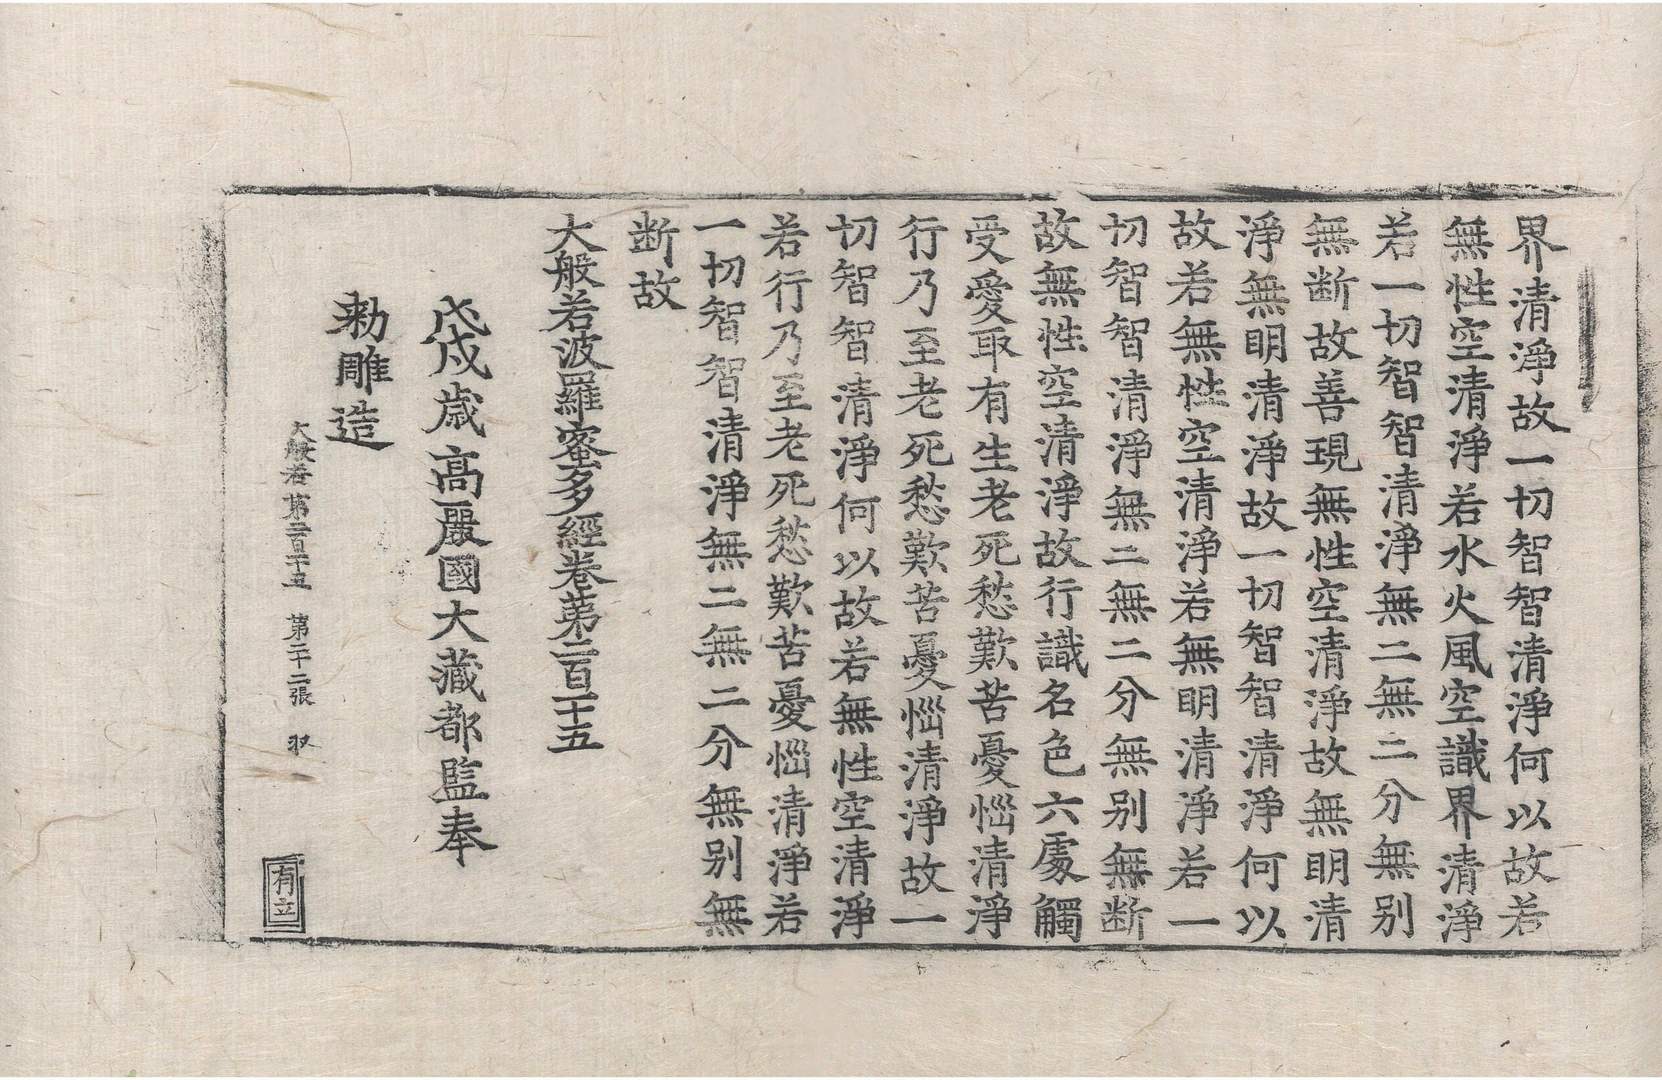 界清淨故一切智智清淨何以故若
無性空清淨若水火風空識界清淨
若一切智智清淨無二無二分無別
無断故善現無性空清淨故無明清
淨無明清淨故一切智智清淨何以
故若無性空清淨若無明清淨若一
切智智清淨無二無二分無別無断
故無性空清淨故行識名色六處觸
受愛取有生老死愁歎苦憂惱清淨
行乃至老死愁歎苦憂惱清淨故一
切智智清淨何以故若無性空清淨
若行乃至老死愁歎苦憂惱清淨若
一切智智清淨無二無二分無別無
断故
大般若波羅蜜多經卷第二百二十五
戊戌歲高麗國大藏都監奉
勅雕造
大般若第二百二十五 第二十二張
有立